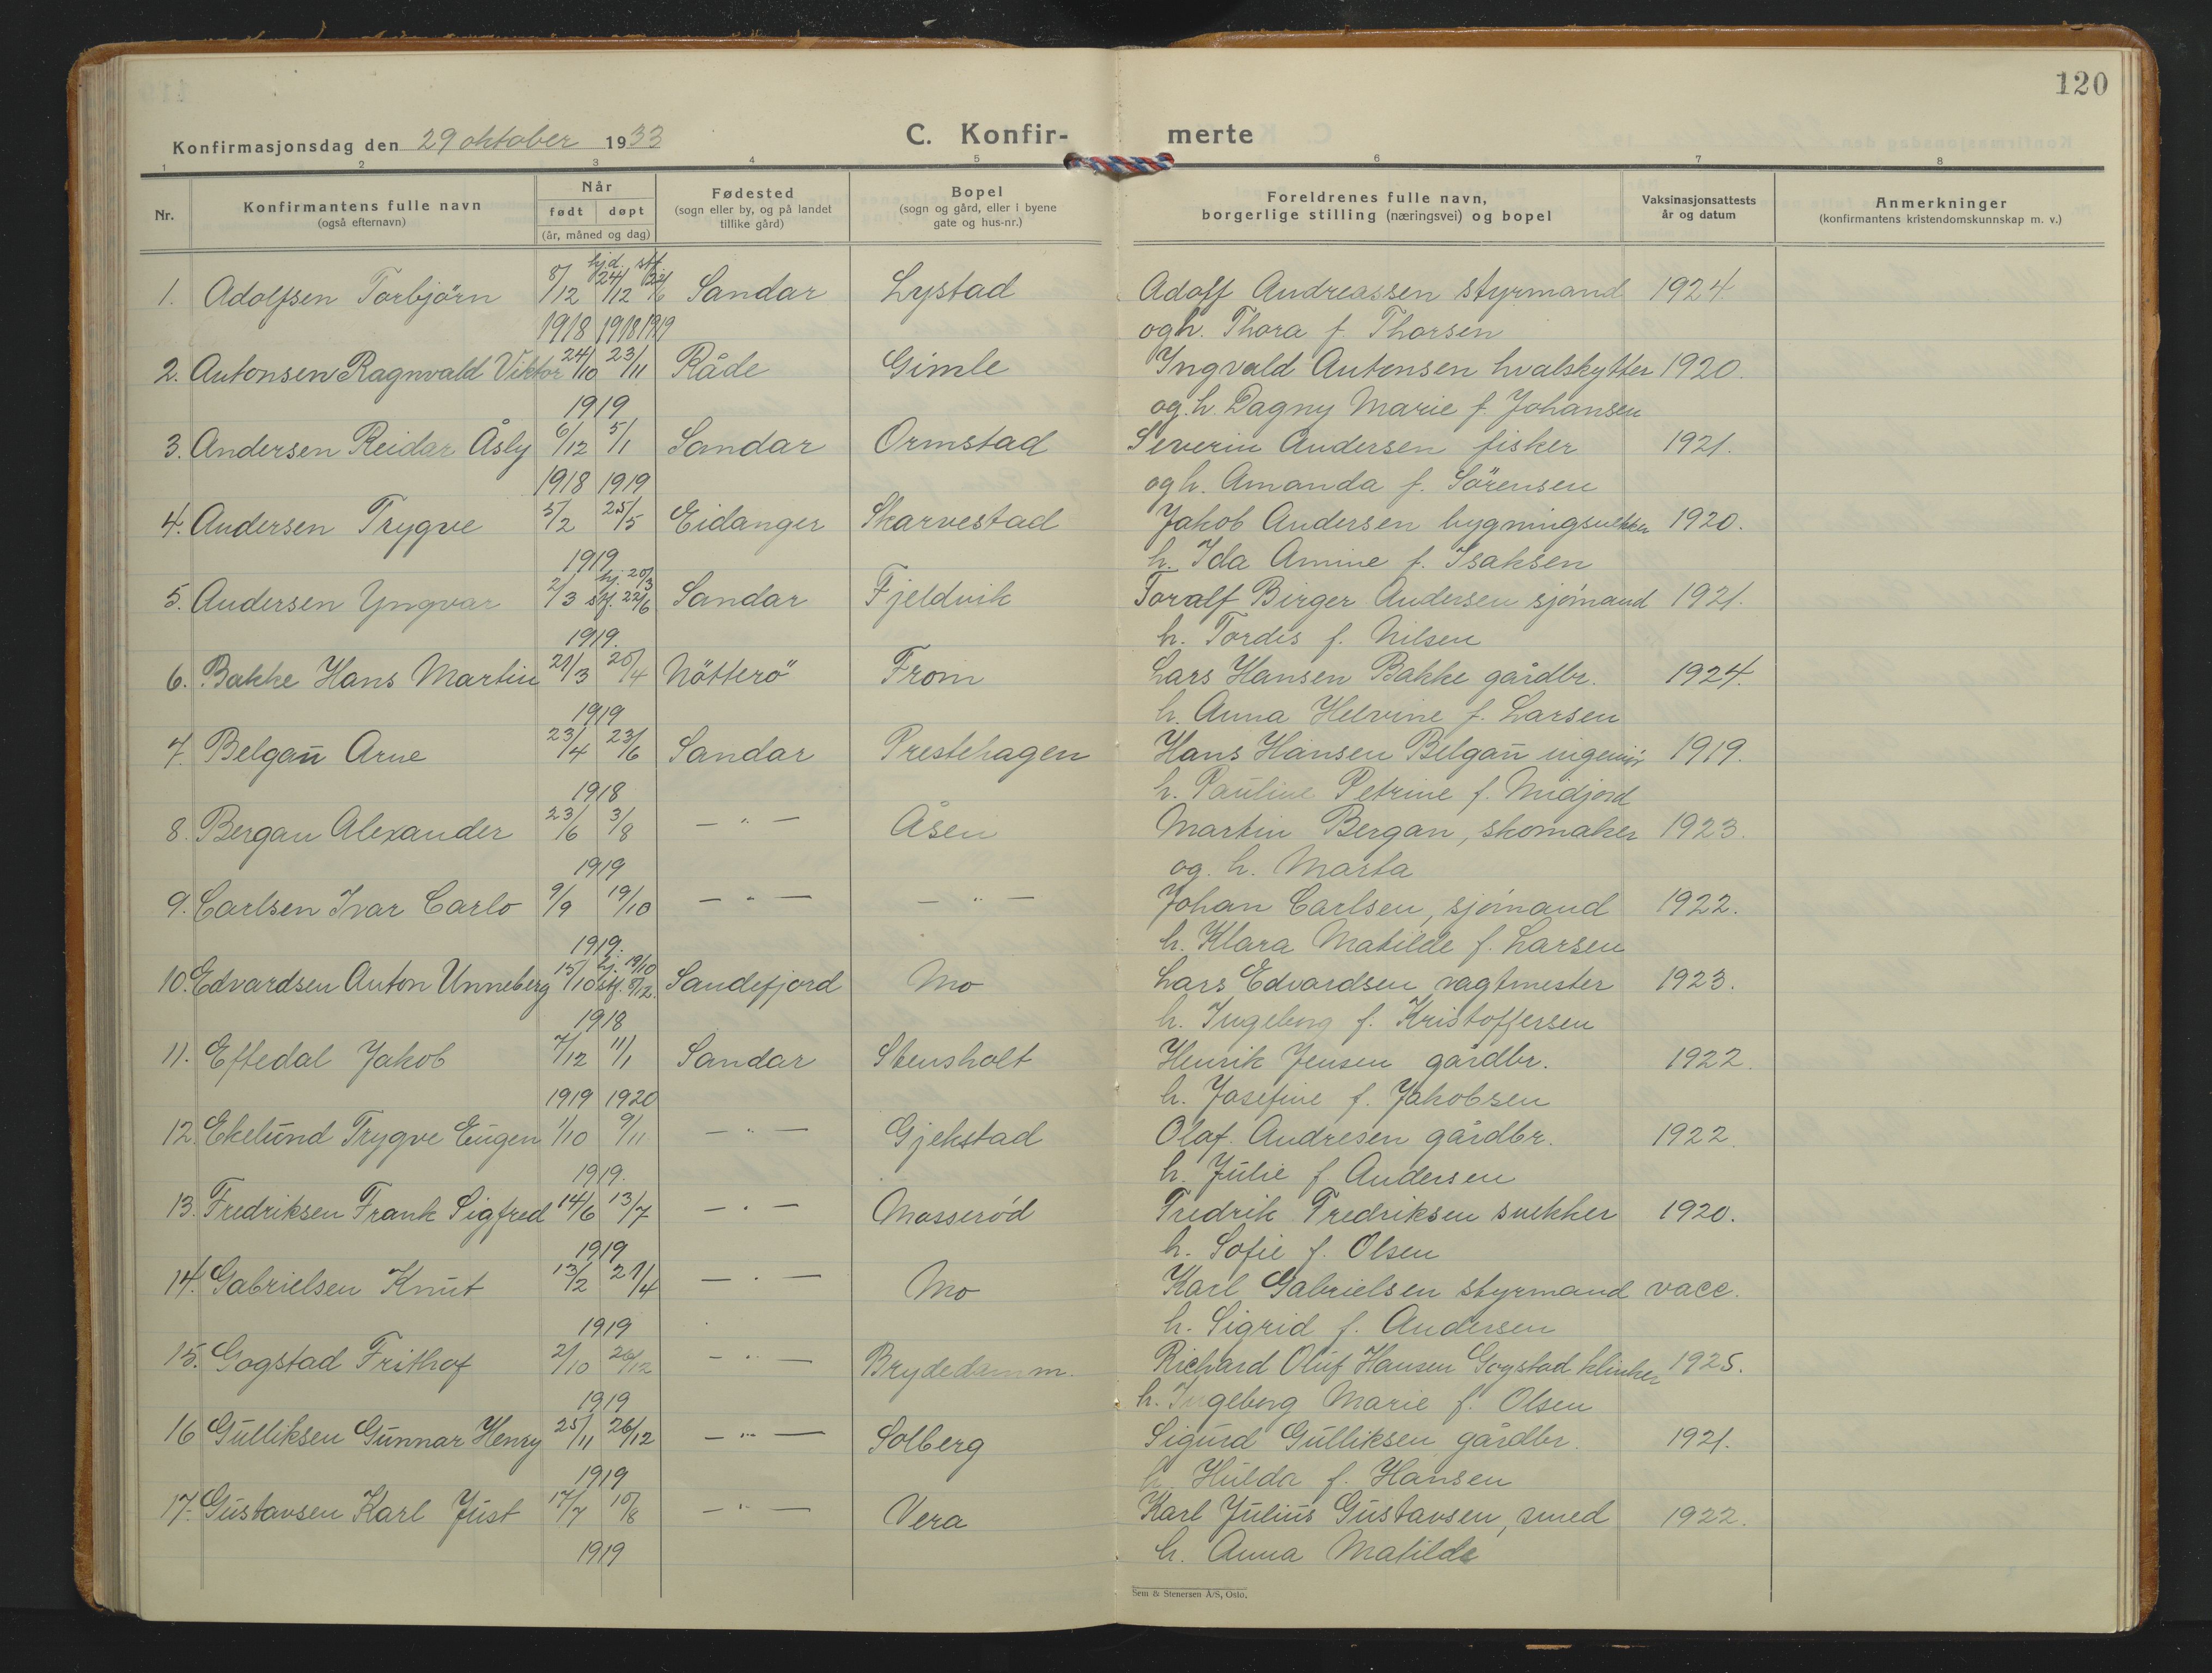 120
Konfirmasjonsdag den 29 oktober 1933
C. Konfir- merte
1 2 3 4 5 6 7 8
Nr. Konfirmantens fulle navn (også efternavn) Når født døpt (år, måned og dag) Fødested (sogn eller by, og på landet tillike gård) Bopel (sogn og gård, eller i byene gate og hus-nr.) Foreldrenes fulle navn, borgerlige stilling (næringsvei) og bopel Vaksinasjonsattests år og datum Anmerkninger (konfirmantens kristendomskunnskap m. v.)
1. Adolfsen Torbjörn 8/12 hj.d. 24/12 stf. 22/6 Sandar Lystad Adolf Andreassen styrmand 1924
1918 1918 1919 og h. Thora f. Thorsen
2. Antonsen Ragnvald Viktor 24/10 23/11 Råde Gimle Ingvald Antonsen hvalskytter 1920.
1919 og. h. Dagny Marie f. Johansen
3. Andersen Reidar Åsly 6/12 5/1 Sandar Ormstad Severin Andersen fisker 1921.
1918 1919 og h. Amanda f. Sörensen
4. Andersen Trygve 5/2 25/5 Eidanger Skarvestad Jakob Andersen bygningsnekker 1920.
1919 h. Ida Amine f. Isaksen
5. Andersen Yngvar 2/3 hj. 20/3 stf. 22/6 Sandar Fjeldvik Toralf Birger Andersen sjömand 1921.
1919. h. Tordis f. Nilsen
6. Bakke Hans Martin 21/3 20/4 Nötterö From Lars Hansen Bakke gårdbr. 1924.
1919 h. Anna Helvine f. Larsen
7. Belgaū Arne 23/4 23/6 Sandar Prestehagen Hans Hansen Belgaū ingeniör 1919.
1918 h. Pauline Petrine f. Midjord
8. Bergan Alexander 23/6 3/8 — " — Åsen Martin Bergan, skomaker 1923.
1919 og. h. Marta
9. Carlsen Ivar Carlo 9/9 19/10 — " — — " — Johan Carlsen, sjömand 1922.
1919. h. Klara Matilde f. Larsen
10. Edvardsen Anton Unneberg 15/10 hj. 19/10 stf. 8/12. Sandefjord Mo Lars Edvardsen vagtmester 1923.
1918 h. Ingeborg f. Kristoffersen
11. Eftedal Jakob 7/12 11/1 Sandar Stensholt Henrik Jensen gårdbr. 1922.
1919 1920 h. Josefine f. Jakobsen
12. Ekelūnd Trygve Eūgen 1/10 9/11 — " — Gjekstad Olaf. Andresen gårdbr. 1922.
1919. h. Jūlie f Andersen
13. Fredriksen Frank Sigfred 14/6 13/7 — " — Masserød Fredrik Fredriksen snekker 1920.
1919 h. Sofie f. Olsen
14. Gabrielsen Knūt 13/2 21/4 — " — Mo Karl Gabrielsen styrmand vacc.
1919 h. Sigrid f. Andersen
15. Gogstad Frithof 2/10 26/12 — " — Brydedamm. Richard Olūf Hansen Gogstad klinker 1925.
1919 h. Ingeborg Marie f. Olsen
16 Gūlliksen Gūnnar Henry 25/11 26/12 — " — Solberg Sigurd Gūlliksen gårdbr. 1921.
1919 h. Hūlda f. Hansen
17. Gūstavsen Karl Jūst 17/7 10/8 — " — Vera Karl Jūliūs Gūstavsen, smed 1922.
1919 h. Anna Matilde
Sem & Stenersen A/S, Oslo.